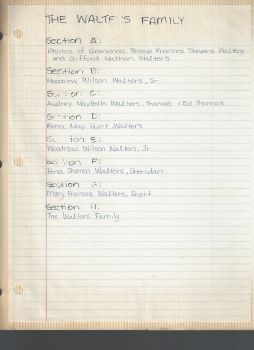 THE WALTE'S FAMILY
Section A:
Photos of Grandma Bessie Frances Stevens Walters
and Gifford Nathan Walters
Section B:
Woodrow Wilson Walters, Sr.
Section C:
Audrey Maybelle Walters, Thomas + Ed Thomas
Section D:
Rena May Hunt, Walters
Section E:
Woodrow Wilson Walters, Jr.
Section F:
Rena Sharon Walters, Sheridan
Section G:
Mary Frances Walters, Short
Section H:
The Walters Family